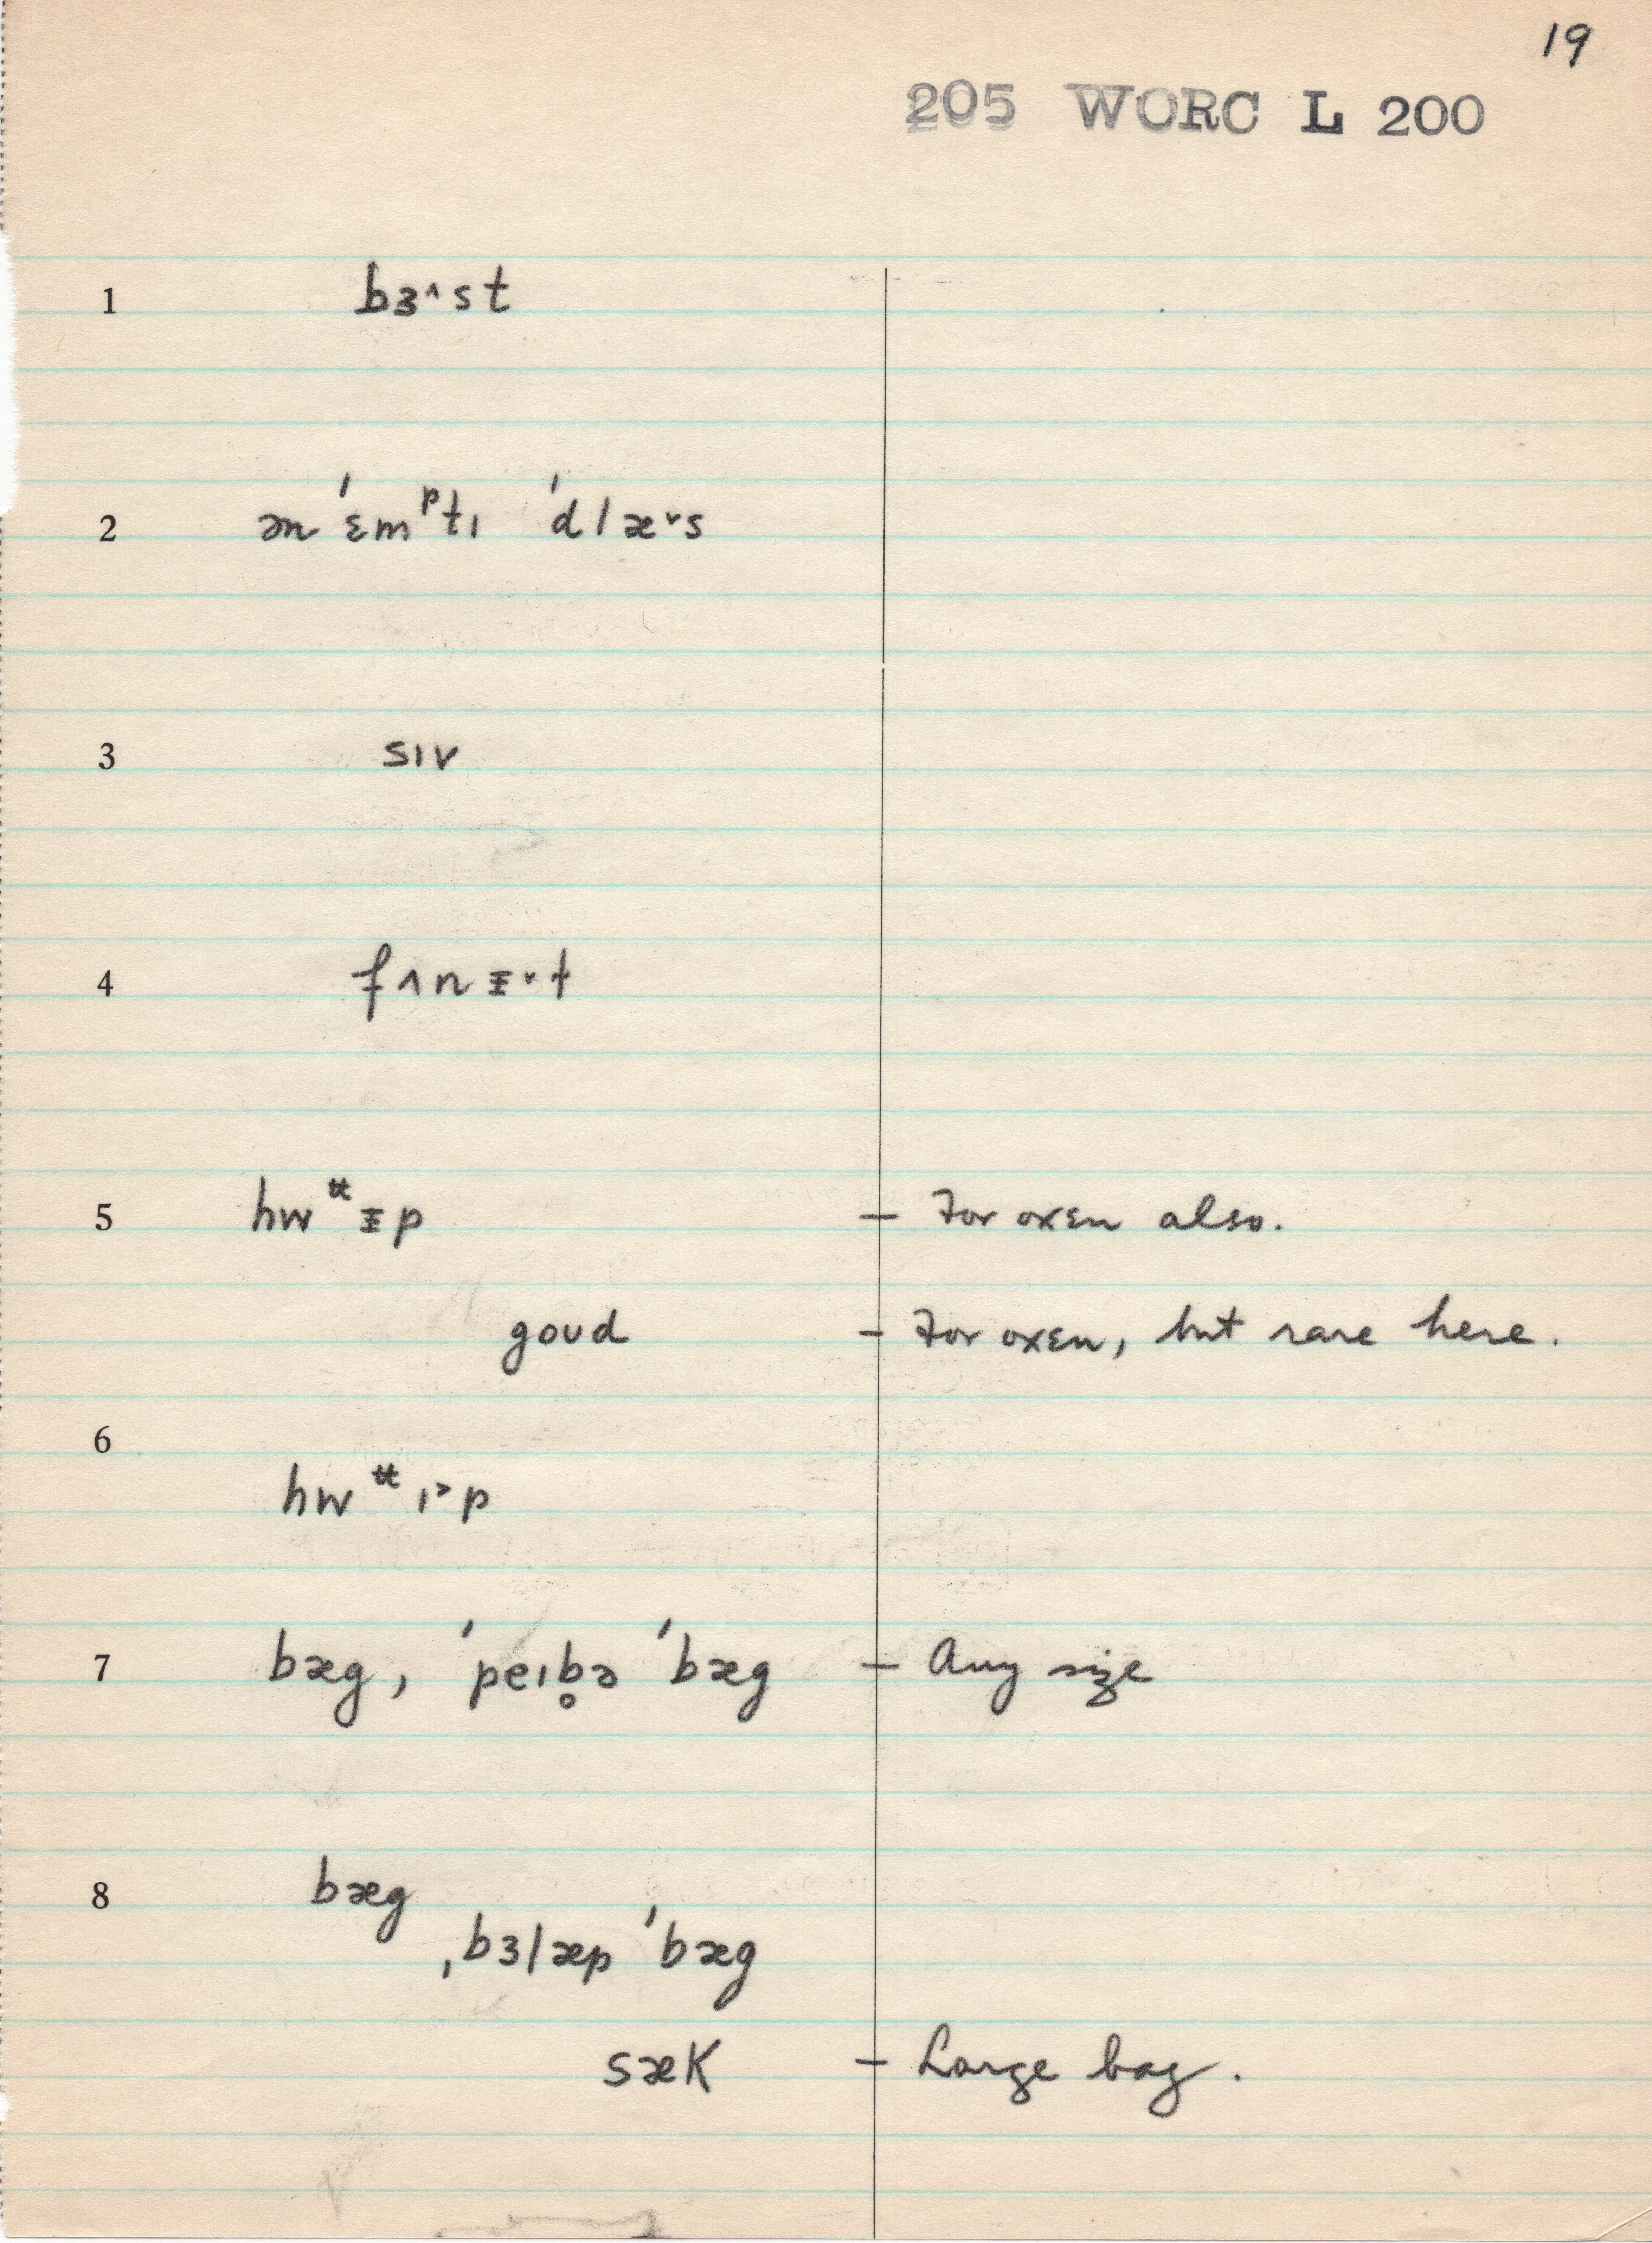 19
205 WORC L 200
1 bɜ˄st
2 ən ˈɛmᵖtɪ ˈdlæ˅s
3 sɪv
4 fʌnɪ̵˅t
5 hwɪ̵p – For oxen also.
goʊd – For oxen, but rare here.
6
hwɪ˃p
7 bæg, ˈpeɪb̥ə ˈbæg – Any size
8 bæg
ˌbɜlæp ˈbæg
sæk – Large bag.